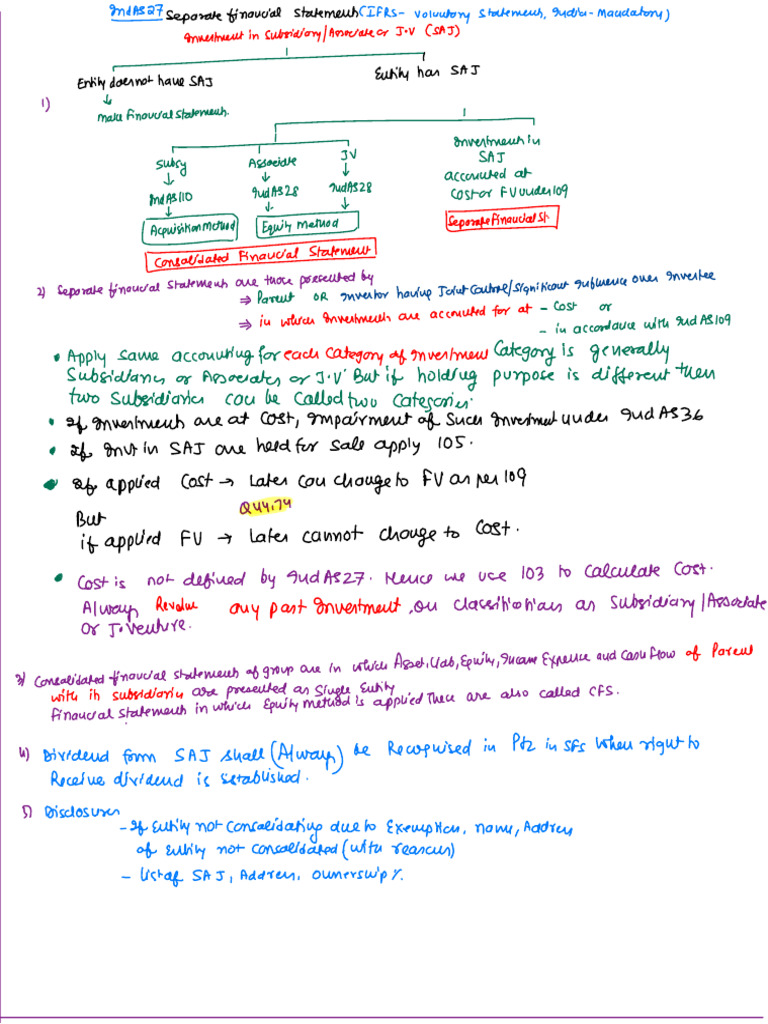 IndAS27 Separate financial Statements (IFRS- Voluntary Statement, India-Mandatory)
Investment in Subsidiary/Associate or J.V (SAJ)
Entity does not have SAJ
Entity has SAJ
1)
make Financial Statements.
Subsy
Associate
JV
Investments in
SAJ
accounted at
Cost or FV under 109
IndAS110
IndAS28
IndAS28
Acquisition Method
Equity Method
Separate Financial St.
Consolidated Financial Statement
2) Separate financial Statements are those presented by
⇒ Parent OR Investor having Joint Control/Significant Influence over Investee
⇒ in which Investments are accounted for at - Cost or
- in accordance with IndAS109
• Apply same accounting for each Category of Investment Category is generally
Subsidiaries or Associates or J.V. But if holding purpose is different then
two Subsidiaries can be Called two Categories.
• If Investments are at Cost, Impairment of Such Investment under IndAS36
• If Invt in SAJ are held for Sale apply 105.
• If applied Cost → Later can change to FV as per 109
Q44,74
But
if applied FV → Later cannot change to Cost.
• Cost is not defined by IndAS27. Hence we use 103 to Calculate Cost.
Always Revalue any past Investment, on classification as Subsidiary/Associate
or J.Venture.
3) Consolidated financial statements of group are in which Asset, Liab, Equity, Income Expense and Cash flow of Parent
with its subsidiaries are presented as Single Entity
Financial Statements in which Equity method is applied These are also called CFS.
4) Dividend form SAJ shall (Always) be Recognised in P&L in SFS when right to
Receive dividend is established.
5) Disclosures
- If Entity not Consolidating due to Exemption, Name, Address
of Entity not Consolidated (with reasons)
- List of SAJ, Address, ownership %.